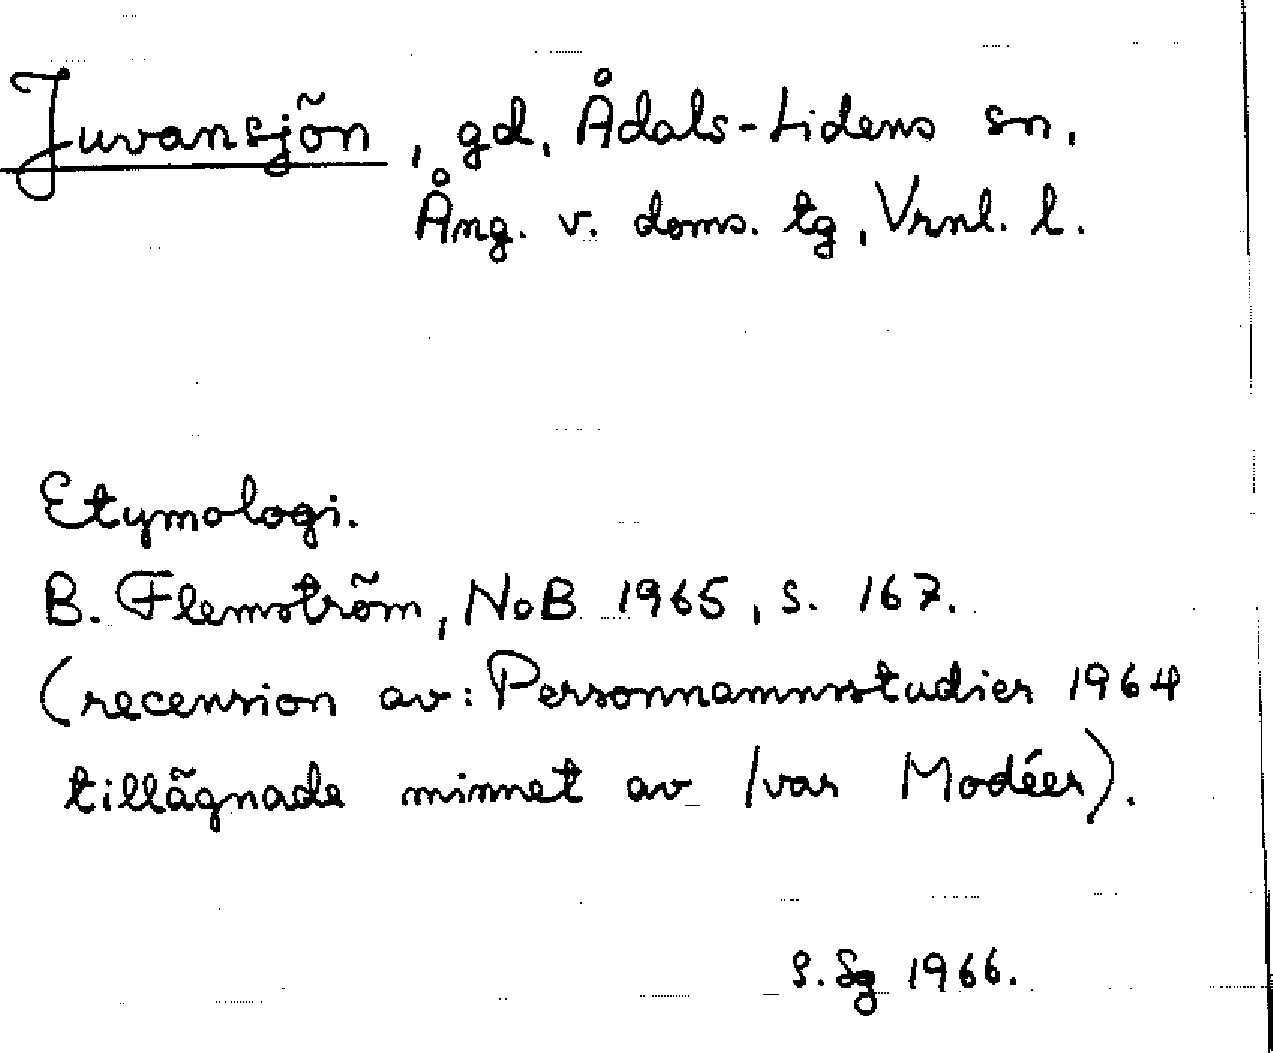 Juvansjön, gd, Ådals-Lidens sn,
Ång. v. doms. tg, Vrnl. l.
Etymologi.
B. Flemström, NoB 1965, s. 167.
(recension av: Personnamnsstudier 1964
tillägnade minnet av Ivar Modéer).
S. Sg 1966.